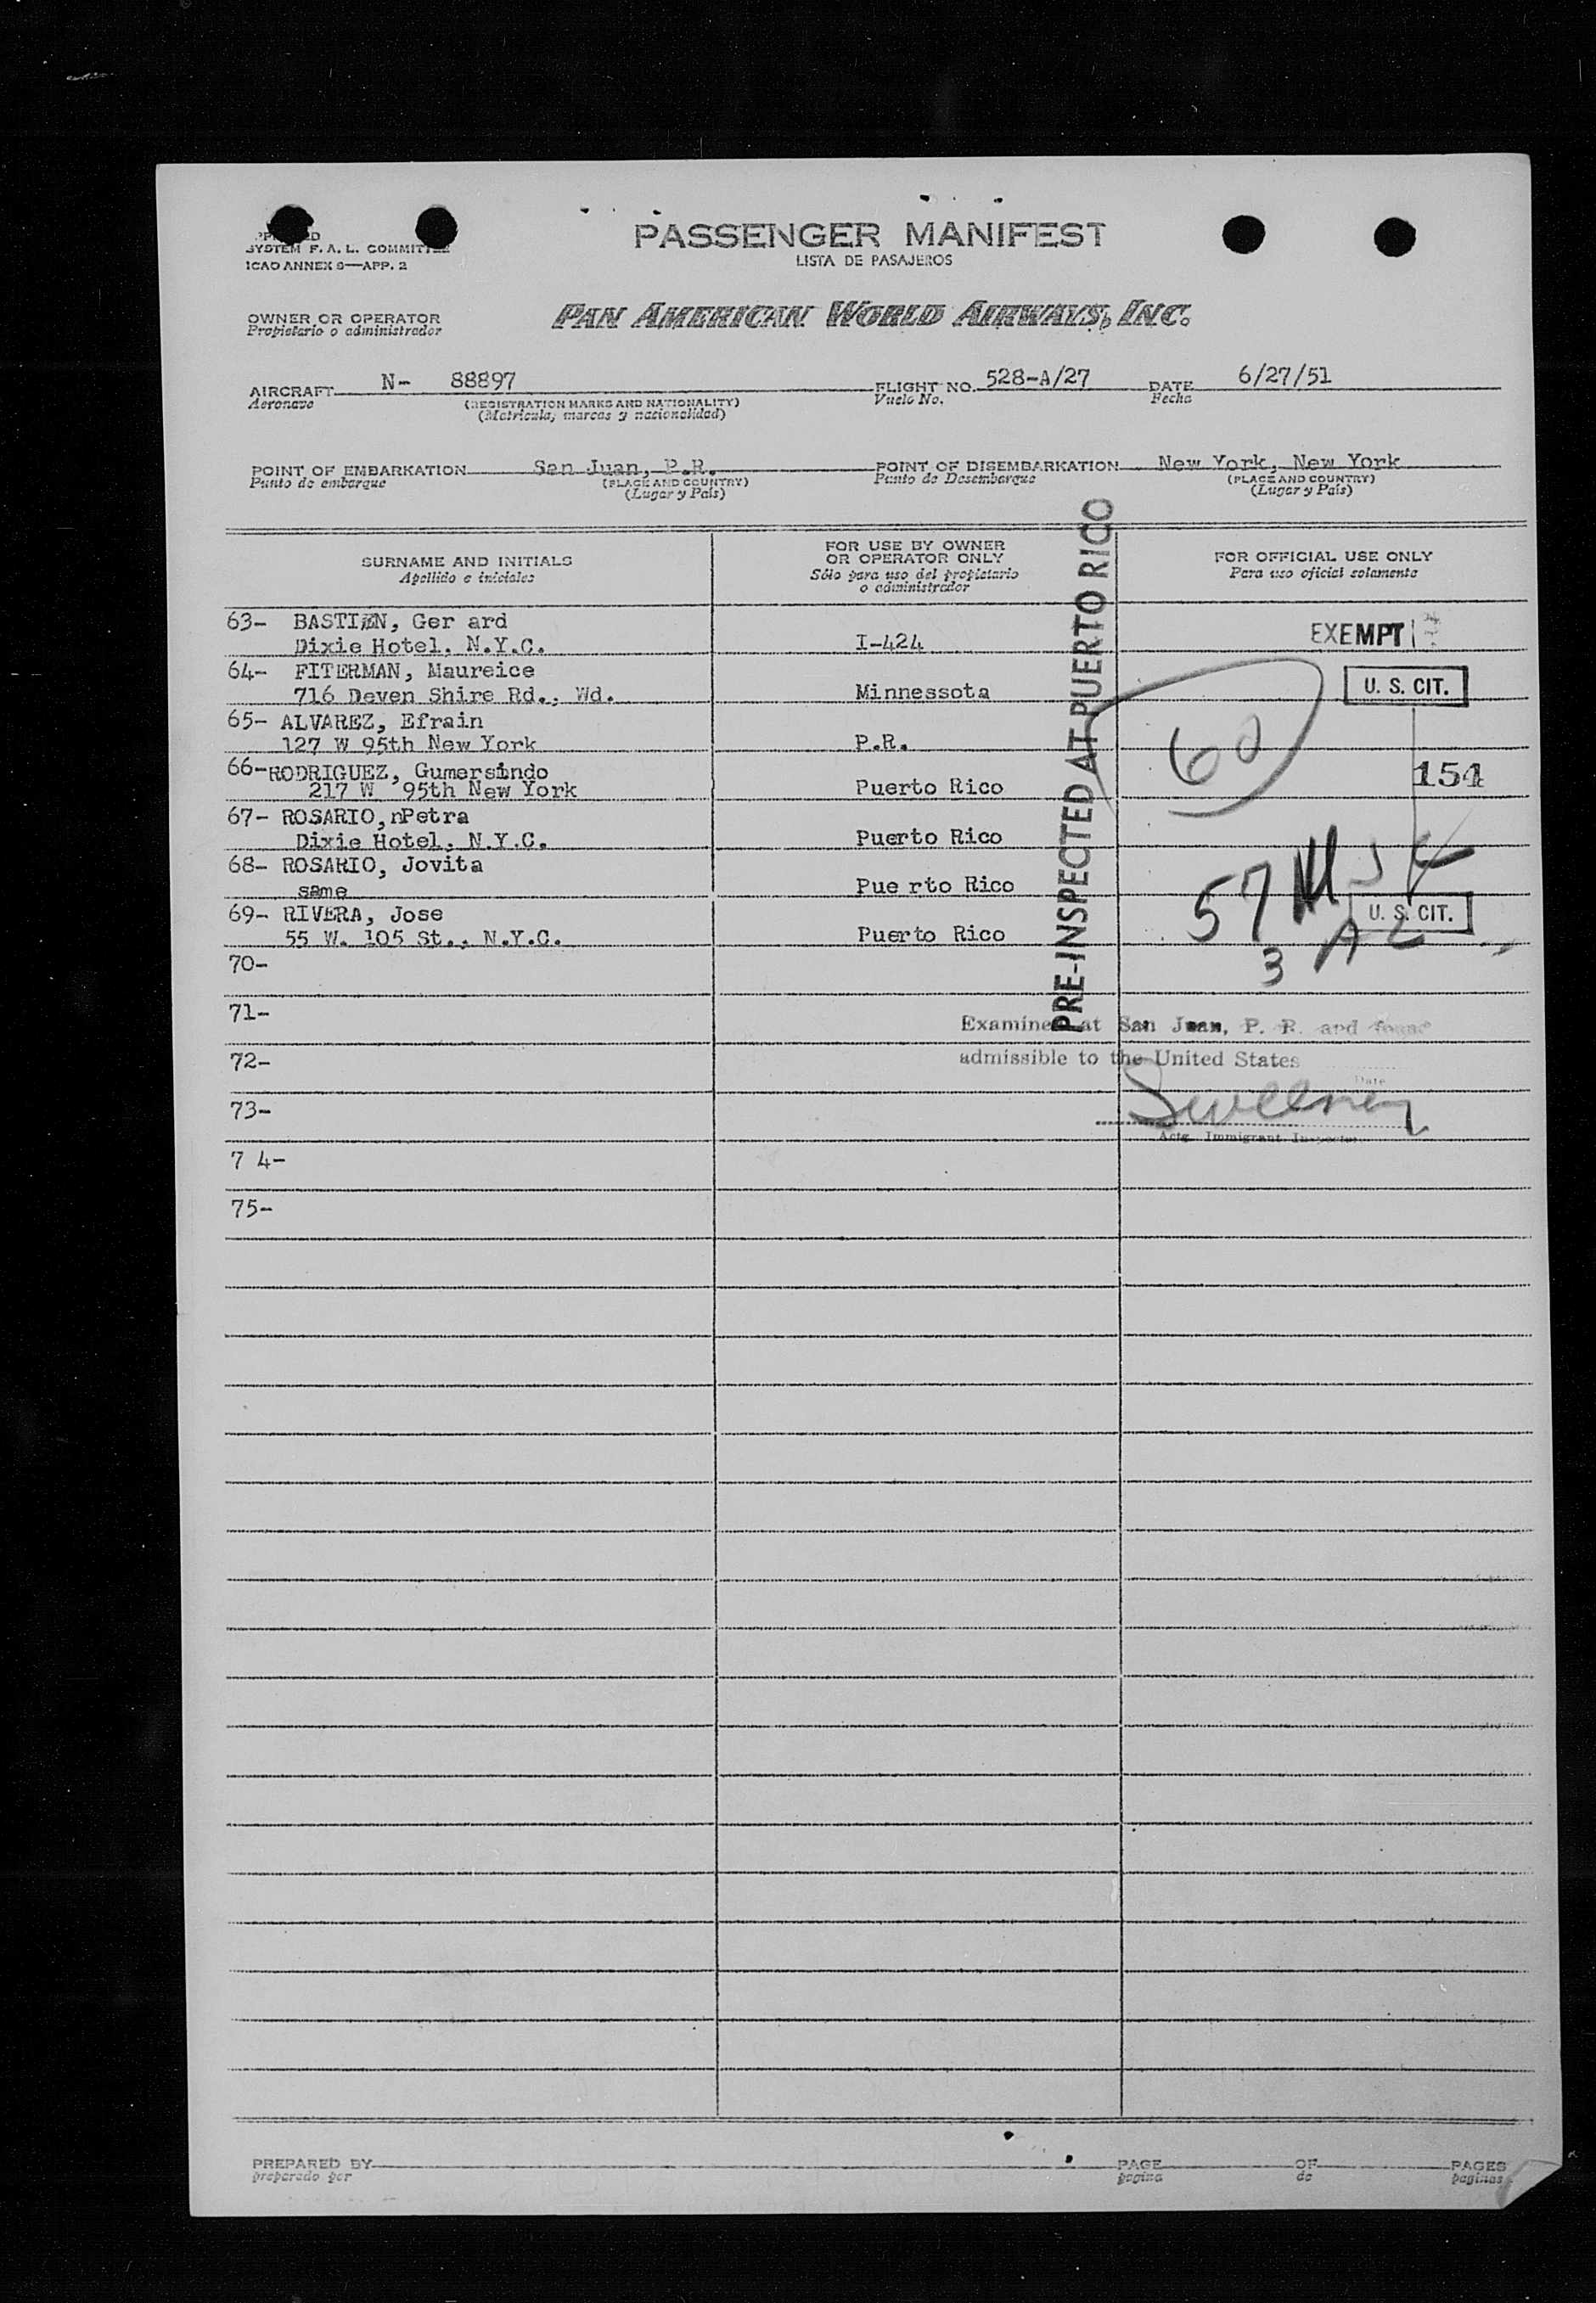 SYSTEM F. A. L. COMMITTEE
ICAO ANNEX 9—APP. 2
PASSENGER MANIFEST
LISTA DE PASAJEROS
OWNER OR OPERATOR
Propietario o administrador
PAN AMERICAN WORLD AIRWAYS, INC.
AIRCRAFT N- 88897 FLIGHT NO. 528-A/27 DATE 6/27/51
Aeronave (REGISTRATION MARKS AND NATIONALITY) Vuelo No. Fecha
(Matricula, marcas y nacionalidad)
POINT OF EMBARKATION San Juan, P.R. POINT OF DISEMBARKATION New York, New York
Punto de embarque (PLACE AND COUNTRY) Punto de Desembarque (PLACE AND COUNTRY)
(Lugar y País) (Lugar y País)
SURNAME AND INITIALS
Apellido e iniciales
FOR USE BY OWNER
OR OPERATOR ONLY
Sólo para uso del propietario
o administrador
FOR OFFICIAL USE ONLY
Para uso oficial solamente
PRE-INSPECTED AT PUERTO RICO
63- BASTIEN, Ger ard
Dixie Hotel, N.Y.C. I-424 EXEMPT
64- FITERMAN, Maureice
716 Deven Shire Rd., Wd. Minnessota U. S. CIT.
65- ALVAREZ, Efrain
127 W 95th New York P.R. 60
66-RODRIGUEZ, Gumersindo
217 W 95th New York Puerto Rico 154
67- ROSARIO,nPetra
Dixie Hotel, N.Y.C. Puerto Rico
68- ROSARIO, Jovita
same Pue rto Rico 57
69- RIVERA, Jose U. S. CIT.
55 W. 105 St., N.Y.C. Puerto Rico
70- 3 A
71-
Examined at San Juan, P. R. and found
72- admissible to the United States
Date
73- Sweeney
Actg. Immigrant Inspector
7 4-
75-
PREPARED BY PAGE OF PAGES
preparado por pagina de paginas